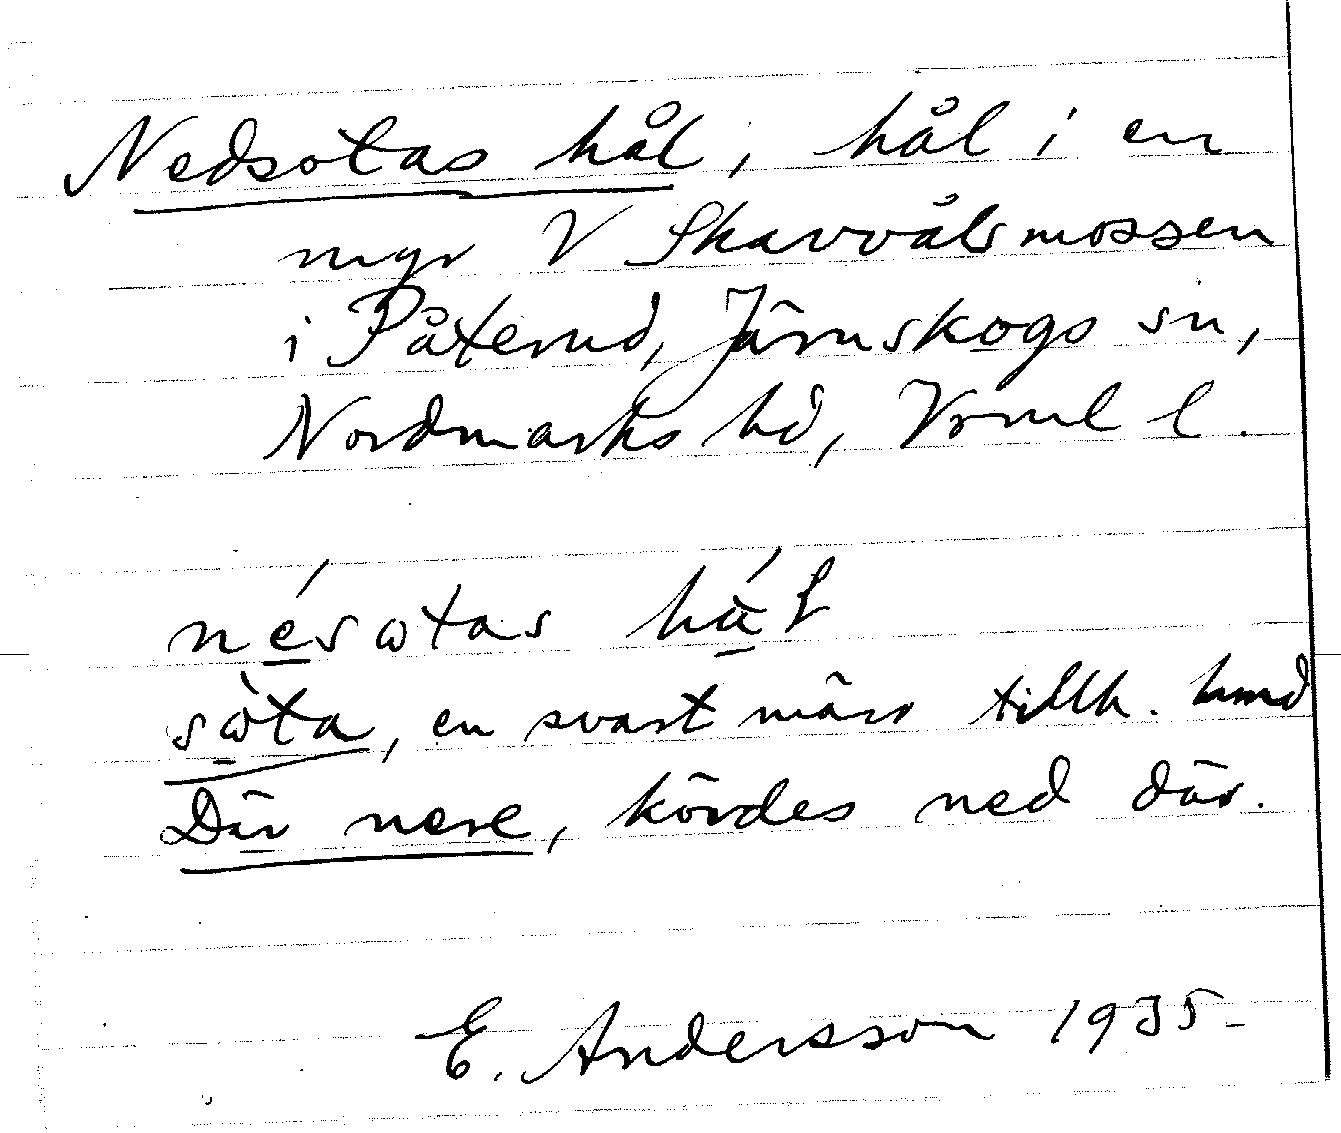 Nedsotas hål, hål i en
myr V Skarvålsmossen
i Påterud, Järnskogs sn,
Nordmarks hd, Vrml l.
nésωtas hål
sωta, en svart märr tillh.
Där nere, kördes ned där.
E. Andersson 1935